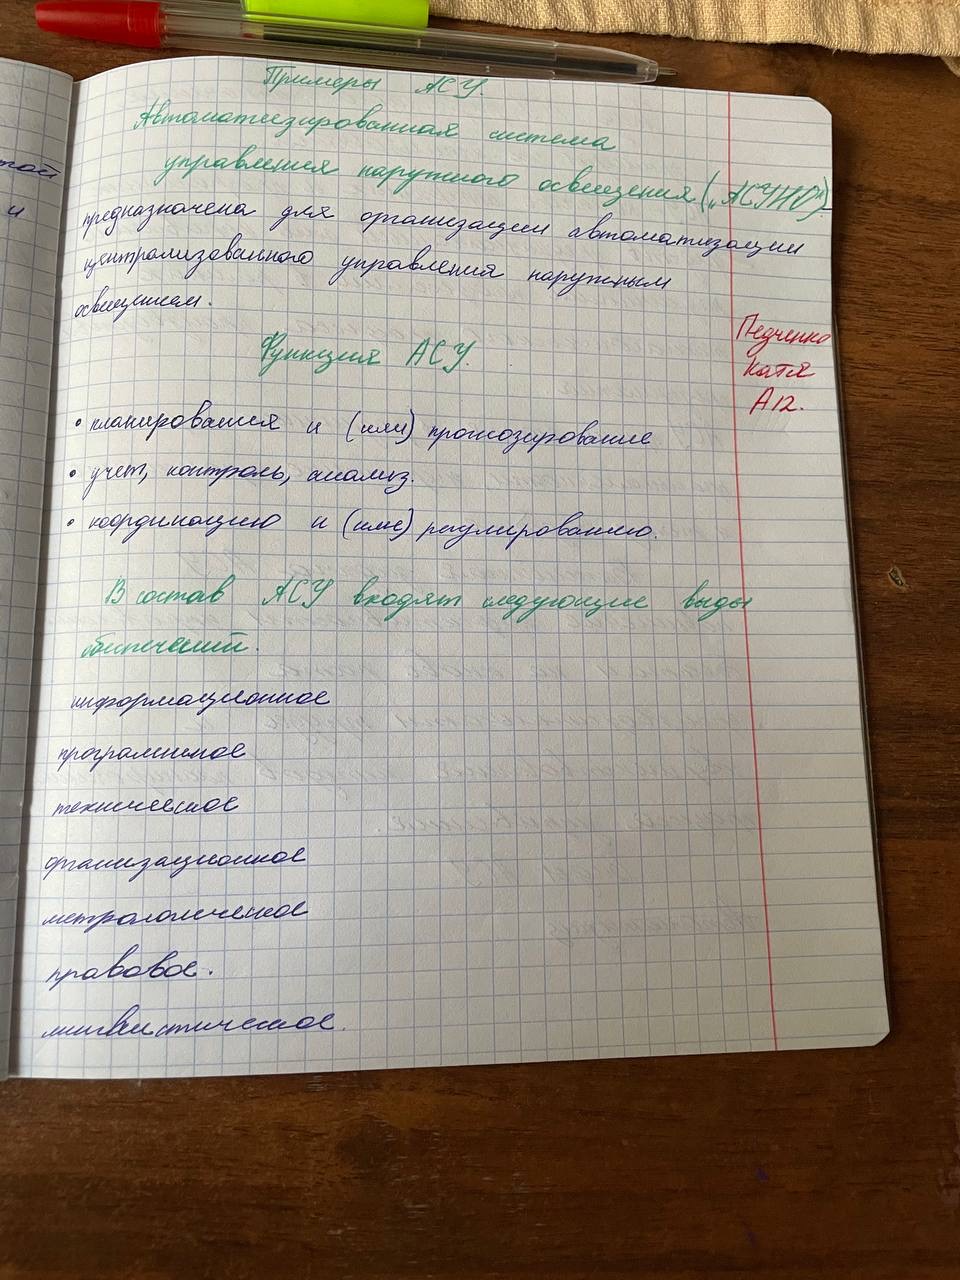 Примеры АСУ.
Автоматизированная система
управления наружного освещения („АСУНО“).
предназначена для организации автоматизации
централизованного управления наружным
освещением.
Функция АСУ.
• планирования и (или) прогнозирование
• учет, контроль, анализ.
• координацию и (или) регулированию.
В состав АСУ входят следующие виды
обеспечений.
информационное
программное
техническое
организационное
метрологическое
правовое.
лингвистическое.
Педченко
Катя
А12.
той
и